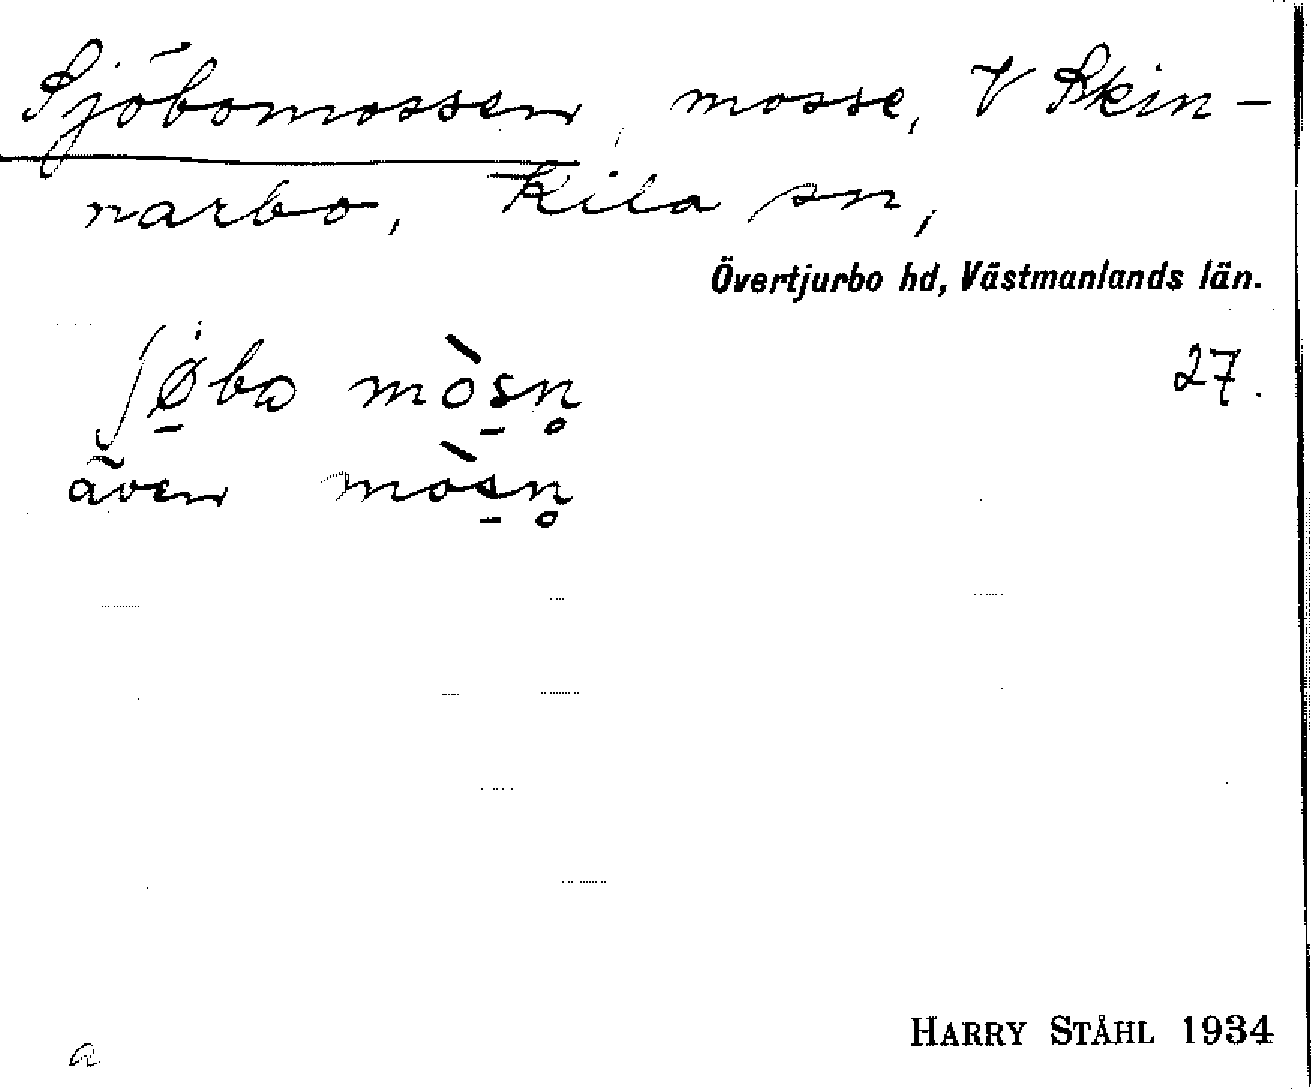 Sjöbomossen, mosse, V Skin-
narbo, Kila sn,
Övertjurbo hd, Västmanlands län.
ʃø̠ba mòs̠n̥ 27.
även mòs̠n̥
HARRY STÅHL 1934
a